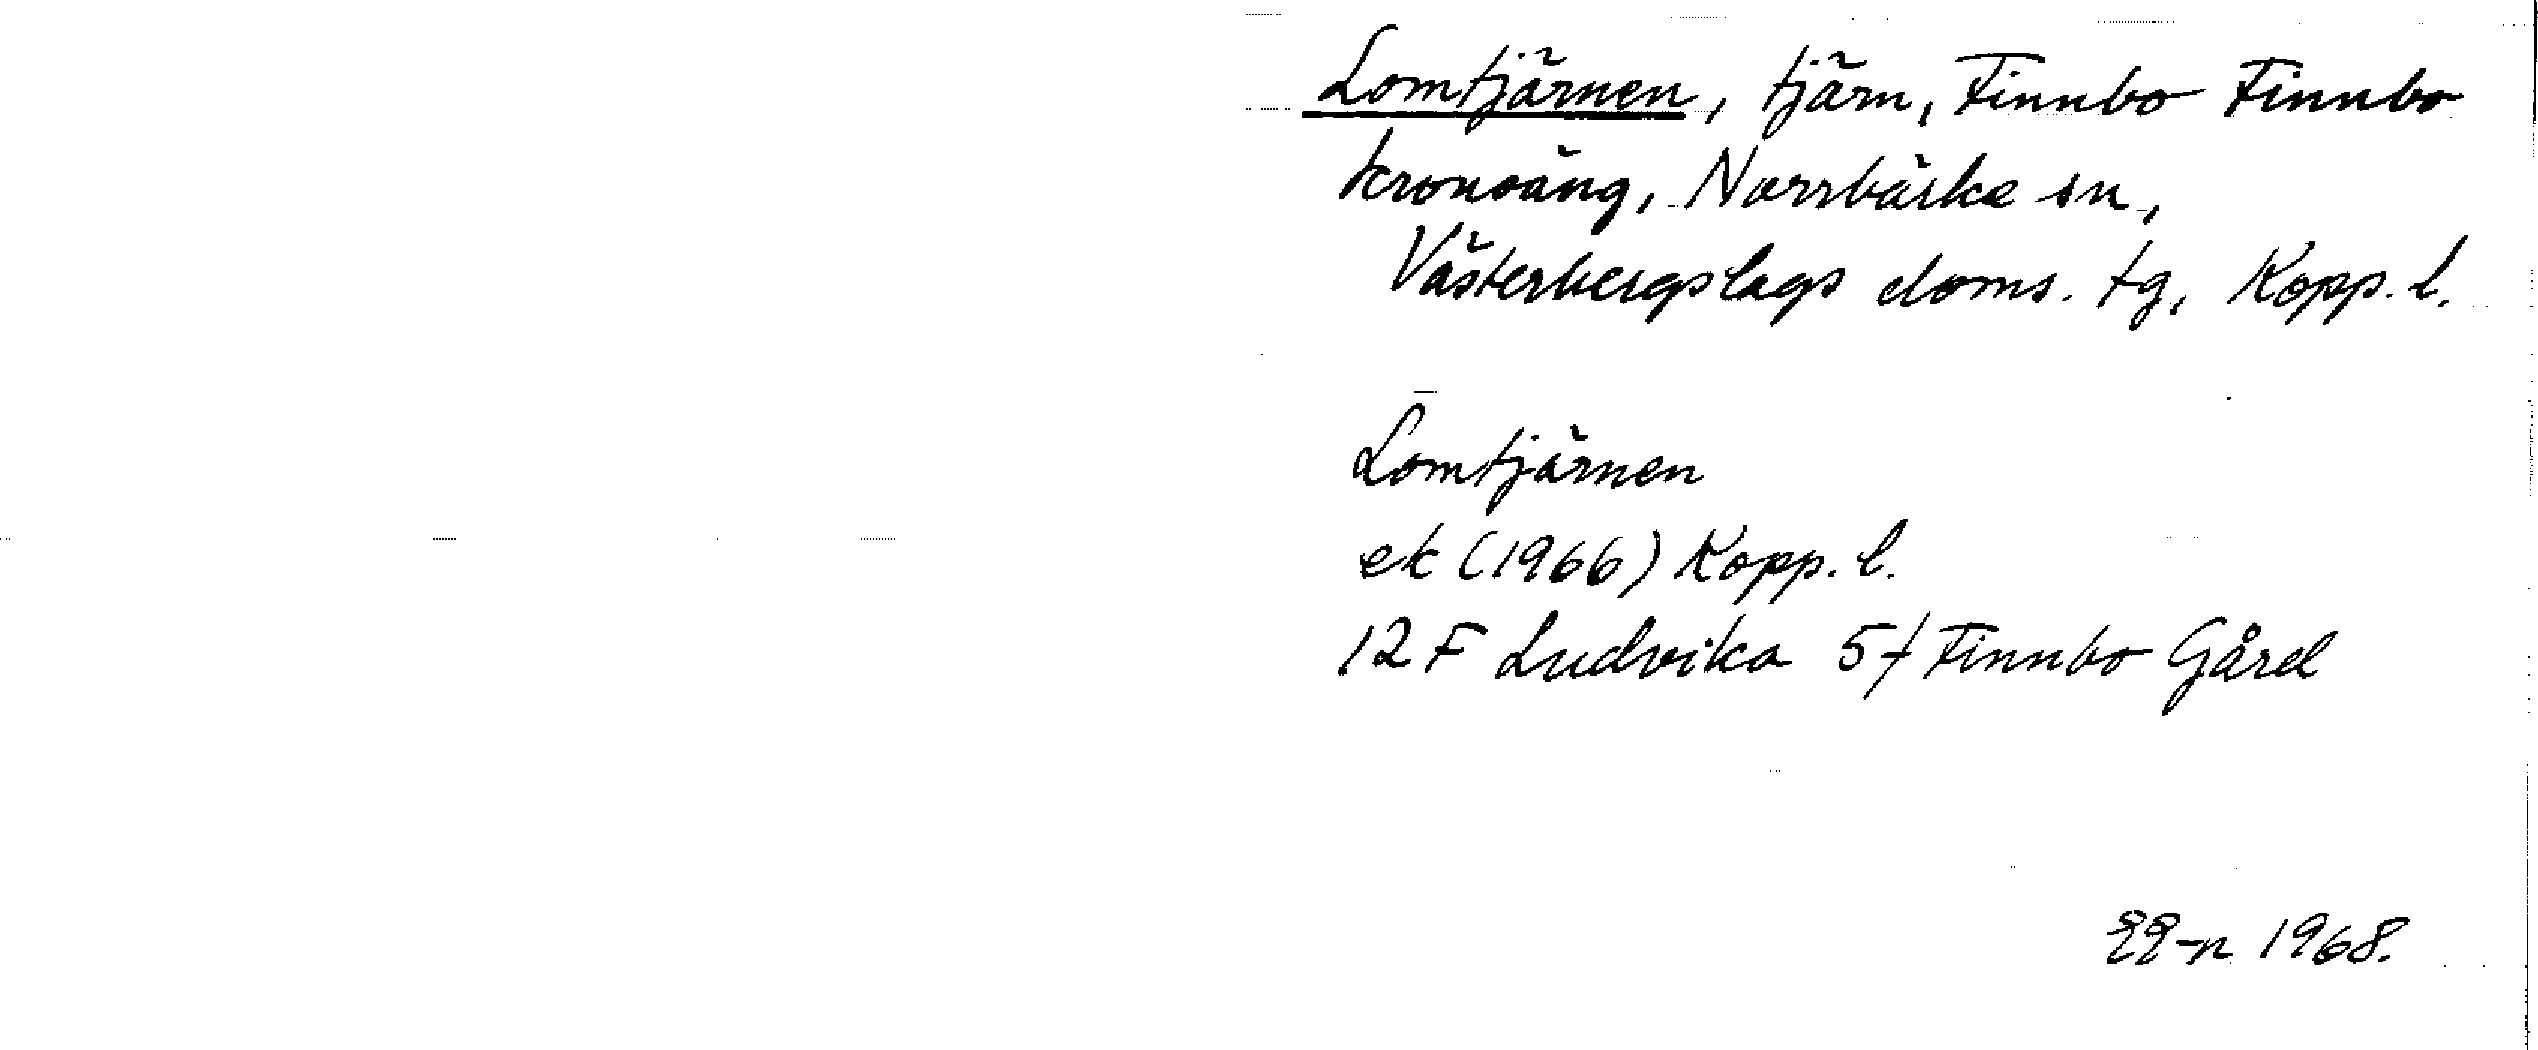 Lomtjärnen, tjärn, Finnbo Finnbo
kronoäng, Norrbärke sn,
Västerbergslags doms. tg, Kopp. l.
Lomtjärnen
ek (1966) Kopp. l.
12 F Ludvika 5f Finnbo Gård
EE-n 1968.